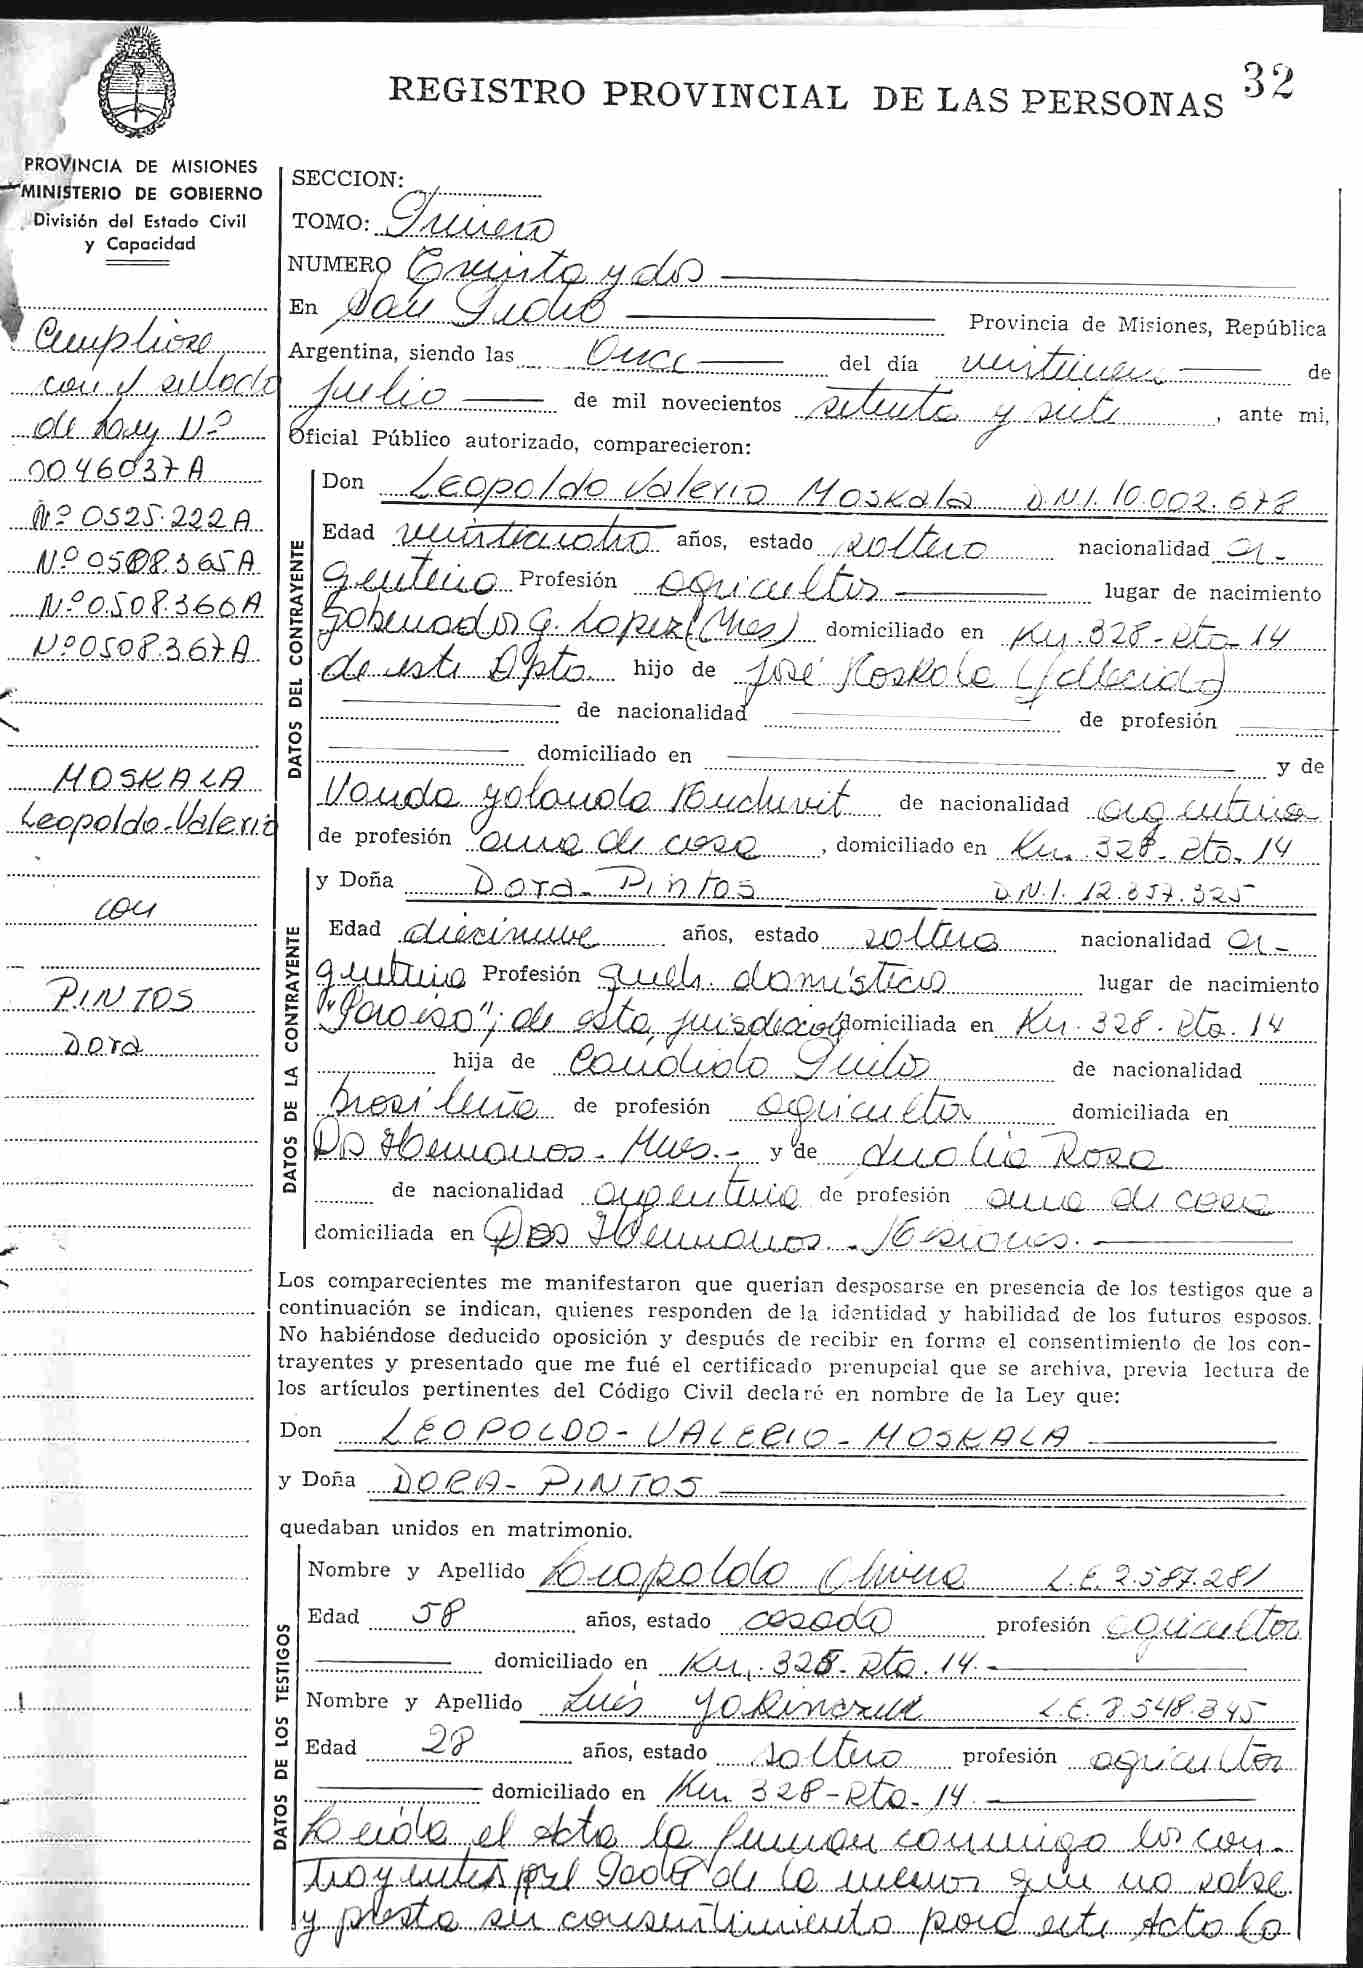 32
REGISTRO PROVINCIAL DE LAS PERSONAS
PROVINCIA DE MISIONES
MINISTERIO DE GOBIERNO
División del Estado Civil
y Capacidad
Cumpliose
con el sellado
de Ley Nº
0046037A
Nº 0525.222A
Nº 0508365A
Nº 0508.366A
Nº 0508.367A
MOSKALA
Leopoldo-Valerio
con
PINTOS
Dora
SECCION:
TOMO: Primero
NUMERO Treinta y dos
En San Pedro Provincia de Misiones, República
Argentina, siendo las Once del día de
julio de mil novecientos setenta y siete, ante mi,
Oficial Público autorizado, comparecieron:
DATOS DEL CONTRAYENTE
Don Leopoldo Valerio Moskala D.N.I. 10.002.678
Edad veinticuatro años, estado soltero nacionalidad ar-
gentino Profesión agricultor lugar de nacimiento
Gobernador G. Lopez (Mnes) domiciliado en Km. 328 - Rta 14
de este Dpto. hijo de José Moskala (fallecido)
de nacionalidad de profesión
domiciliado en y de
Yolanda de nacionalidad argentina
de profesión ama de casa, domiciliado en Km. 328 - Rta. 14
DATOS DE LA CONTRAYENTE
y Doña Dora - Pintos D.N.I. 12.857.325
Edad diecinueve años, estado soltera nacionalidad ar-
gentina Profesión queh. domésticos lugar de nacimiento
"Paraiso", de esta jurisdicción domiciliada en Km. 328. Rta. 14
hija de Candido Pintos de nacionalidad
brasileña de profesión agricultor domiciliada en
Dos Hermanos - Mnes. - y de Rosa
de nacionalidad argentina de profesión ama de casa
domiciliada en Dos Hermanos - Misiones.
Los comparecientes me manifestaron que querian desposarse en presencia de los testigos que a
continuación se indican, quienes responden de la identidad y habilidad de los futuros esposos.
No habiéndose deducido oposición y después de recibir en forma el consentimiento de los con-
trayentes y presentado que me fué el certificado prenupcial que se archiva, previa lectura de
los artículos pertinentes del Código Civil declaré en nombre de la Ley que:
Don LEOPOLDO - VALERIO - MOSKALA
y Doña DORA - PINTOS
quedaban unidos en matrimonio.
DATOS DE LOS TESTIGOS
Nombre y Apellido Leopoldo Olivera L.E. 2.587.281
Edad 58 años, estado casado profesión agricultor
domiciliado en Km. 328 - Rta. 14. -
Nombre y Apellido Luis L.E. 8.548.345
Edad 28 años, estado soltero profesión agricultor
domiciliado en Km. 328 - Rta. 14. -
Leida el Acta la firman conmigo los con-
trayentes de la menor que no sabe
y presta su consentimiento para este Acto lo